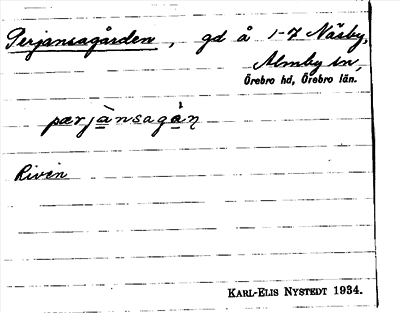 Perjansagården, gd å 1-7 Näsby,
Almby sn,
Örebro hd, Örebro län.
pærjànsagå̀ɳ
Riven
KARL-ELIS NYSTEDT 1934.